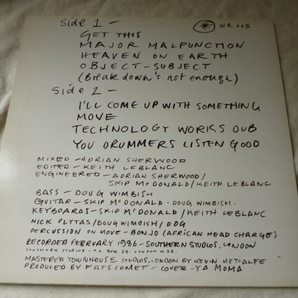 SIDE 1 -
WR 005
GET THIS
MAJOR MALFUNCTION
HEAVEN ON EARTH
OBJECT - SUBJECT
(Break down's not enough)
SIDE 2 -
I'LL COME UP WITH SOMETHING
MOVE
TECHNOLOGY WORKS DUB
YOU DRUMMERS LISTEN GOOD
MIXED - ADRIAN SHERWOOD
EDITED - KEITH LEBLANC
ENGINEERED - ADRIAN SHERWOOD/
SKIP McDONALD/KEITH LEBLANC
BASS - DOUG WIMBISH
GUITAR - SKIP McDONALD. DOUG WIMBISH.
KEYBOARDS - SKIP McDONALD / KEITH LEBLANC
NICK PLYTAS/DOUG WIMBISH/DDG
PERCUSSION ON MOVE - BONJO (AFRICAN HEAD CHARGE)
RECORDED FEBRUARY 1986 - SOUTHERN STUDIOS. LONDON
SOUTHERN STUDIOS - LONDON
MASTERED TOWNHOUSE STUDIOS. LONDON BY KEVIN METCALFE
PRODUCED BY FATS COMET - COVER - YA MOMA